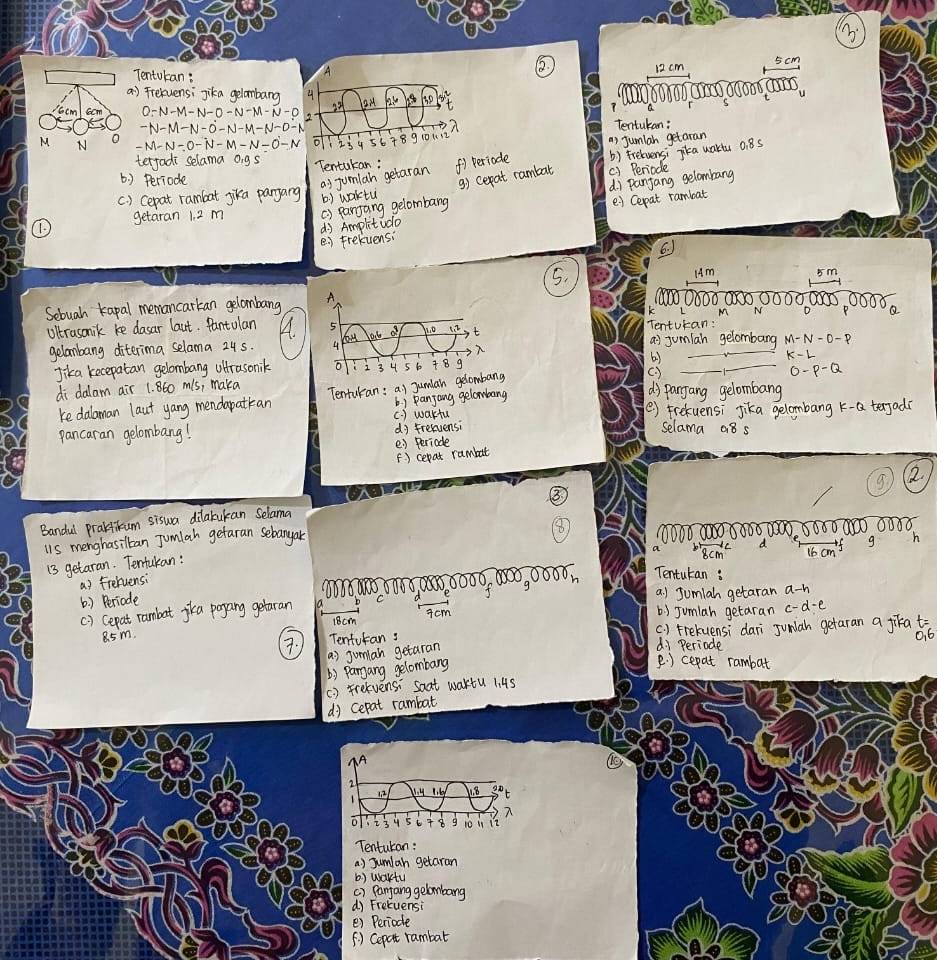 1.
Tentukan :
a.) Frekuensi jika gelombang
O-N-M-N-O-N-M-N-O
-N-M-N-O-N-M-N-O-N
-M-N-O-N-M-N-O-N
terjadi selama 0,9 s
b.) Periode
c.) Cepat rambat jika panjang
getaran 1.2 m
6cm 6cm
M N O
2.
A
4
2
2.2 2.4 2.6 2.8 3.0 3.2 t
0 1 2 3 4 5 6 7 8 9 10 11 12 λ
Tentukan :
a.) Jumlah getaran
b.) Waktu
c.) Panjang gelombang
d.) Amplitudo
e.) Frekuensi
f.) Periode
g.) Cepat rambat
3.
12 cm 5 cm
P q r s t u
Tentukan :
a.) Jumlah getaran
b.) Frekuensi jika waktu 0,8 s
c.) Periode
d.) Panjang gelombang
e.) Cepat rambat
4.
Sebuah kapal memancarkan gelombang
Ultrasonik ke dasar laut. Pantulan
gelombang diterima selama 24 s.
Jika kecepatan gelombang ultrasonik
di dalam air 1.860 m/s, maka
ke dalaman laut yang mendapatkan
pancaran gelombang!
5.
A
5
4
0.4 0.6 0.8 1.0 1.2 t
0 1 2 3 4 5 6 7 8 9 λ
Tentukan : a.) Jumlah gelombang
b.) Panjang gelombang
c.) Waktu
d.) Frekuensi
e.) Periode
f.) Cepat rambat
6.)
14 m 5 m
K L M N O P Q
Tentukan :
a.) Jumlah gelombang M-N-O-P
b.) K-L
c.) O-P-Q
d.) Panjang gelombang
e.) Frekuensi jika gelombang K-Q terjadi
selama 0,8 s
7.
Bandul praktikum siswa dilakukan selama
11s menghasilkan Jumlah getaran sebanyak
13 getaran. Tentukan :
a.) Frekuensi
b.) Periode
c.) Cepat rambat jika panjang getaran
8.5 m.
3.
8
a b c d e f g h
18cm 7cm
Tentukan :
a.) Jumlah getaran
b.) Panjang gelombang
c.) Frekuensi saat waktu 1,4s
d.) Cepat rambat
9. 2.
a b c d e f g h
8cm 16 cm
Tentukan :
a.) Jumlah getaran a-h
b.) Jumlah getaran c-d-e
c.) Frekuensi dari Jumlah getaran a jika t=
0,6
d.) Periode
e.) Cepat rambat
10
A
2
1
1.2 1.4 1.6 1.8 2.0 t
0 1 2 3 4 5 6 7 8 9 10 11 12 λ
Tentukan :
a.) Jumlah getaran
b.) Waktu
c.) Panjang gelombang
d.) Frekuensi
e.) Periode
f.) Cepat rambat